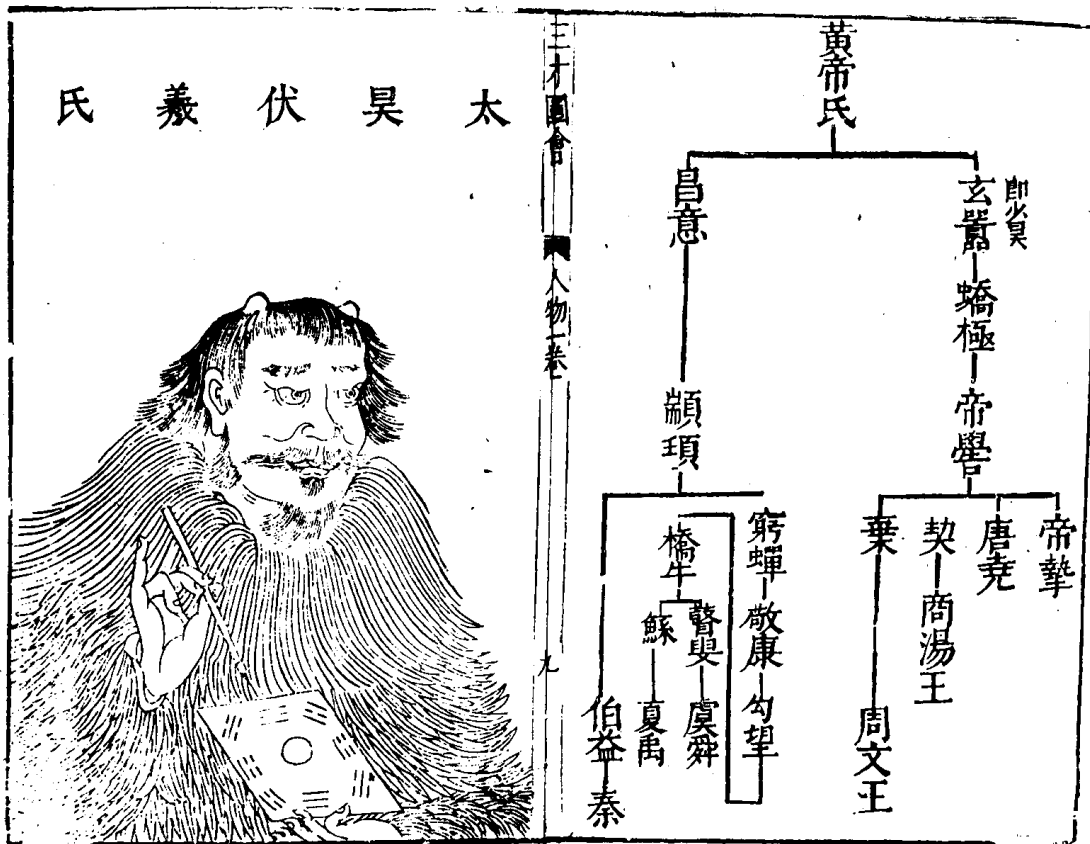 黃帝氏
玄囂
即少昊
蟜極
帝嚳
帝摯
唐堯
契
商湯王
棄
周文王
昌意
顓頊
窮蟬
敬康
勾望
橋牛
瞽叟
虞舜
鯀
夏禹
伯益
秦
三才圖會
人物一卷
九
太昊伏羲氏